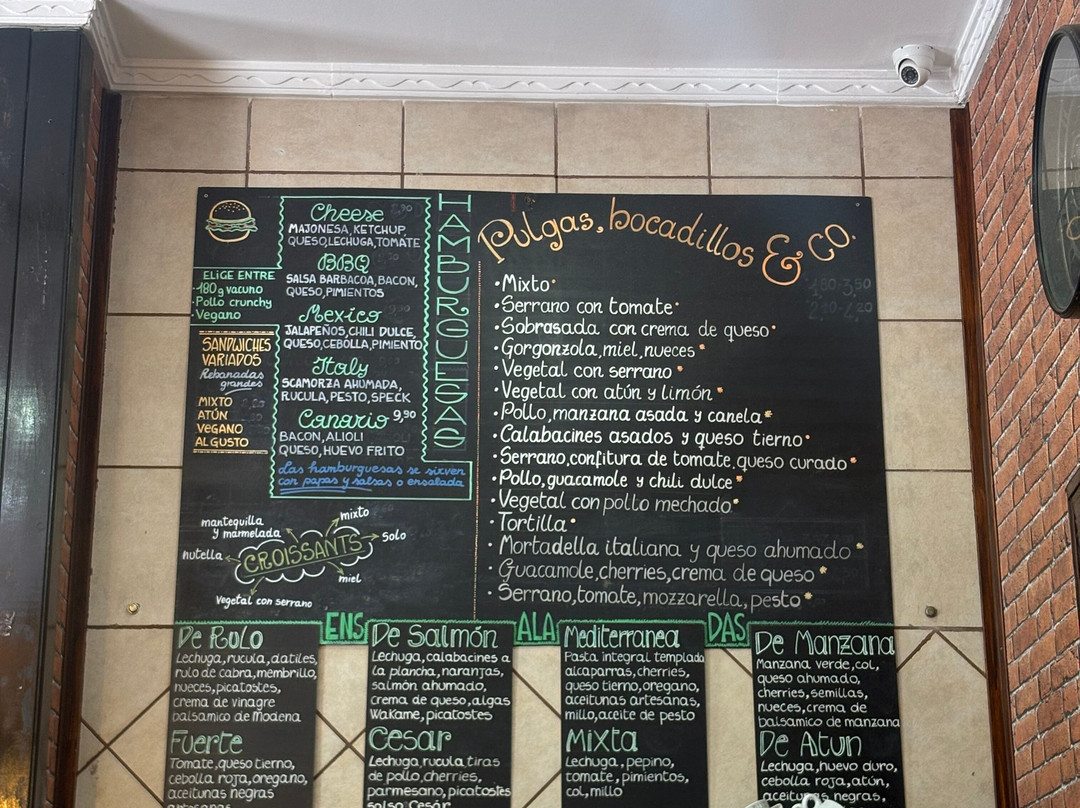 ELIGE ENTRE
-180g vacuno
-Pollo crunchy
-Vegano
SANDWICHES
VARIADOS
Rebanadas
grandes
MIXTO
ATÚN
VEGANO
AL GUSTO
Cheese
MAJONESA, KETCHUP,
QUESO, LECHUGA, TOMATE
BBQ
SALSA BARBACOA, BACON,
QUESO, PIMIENTOS
Mexico
JALAPEÑOS, CHILI DULCE,
QUESO, CEBOLLA, PIMIENTO
Italy
SCAMORZA AHUMADA,
RUCULA, PESTO, SPECK
Canario 9,90
BACON, ALIOLI
QUESO, HUEVO FRITO
Las hamburguesas se sirven
con papas y salsas o ensalada
HAMBURGUESAS
mantequilla
y marmelada
mixto
solo
nutella
CROISSANTS
miel
Vegetal con serrano
Pulgas, bocadillos & co.
•Mixto
•Serrano con tomate
•Sobrasada con crema de queso
•Gorgonzola, miel, nueces
•Vegetal con serrano
•Vegetal con atún y limón
•Pollo, manzana asada y canela
•Calabacines asados y queso tierno
•Serrano, confitura de tomate, queso curado
•Pollo, guacamole y chili dulce
•Vegetal con pollo mechado
•Tortilla
•Mortadella italiana y queso ahumado
•Guacamole, cherries, crema de queso
•Serrano, tomate, mozzarella, pesto
ENSALADAS
De Rulo
Lechuga, rucula, datiles,
rulo de cabra, membrillo,
nueces, picatostes,
crema de vinagre
balsamico de Modena
Fuerte
Tomate, queso tierno,
cebolla roja, oregano,
aceitunas negras
artesanas
De Salmón
Lechuga, calabacines a
la plancha, naranjas,
salmón ahumado,
crema de queso, algas
Wakame, picatostes
Cesar
Lechuga, rucula, tiras
de pollo, cherries,
parmesano, picatostes
salsa Cesar
Mediterranea
Pasta integral templada
alcaparras, cherries,
queso tierno, oregano,
aceitunas artesanas,
millo, aceite de pesto
Mixta
Lechuga, pepino,
tomate, pimientos,
col, millo
De Manzana
Manzana verde, col,
queso ahumado,
cherries, semillas,
nueces, crema de
balsamico de manzana
De Atun
Lechuga, huevo duro,
cebolla roja, atún,
aceitunas negras,